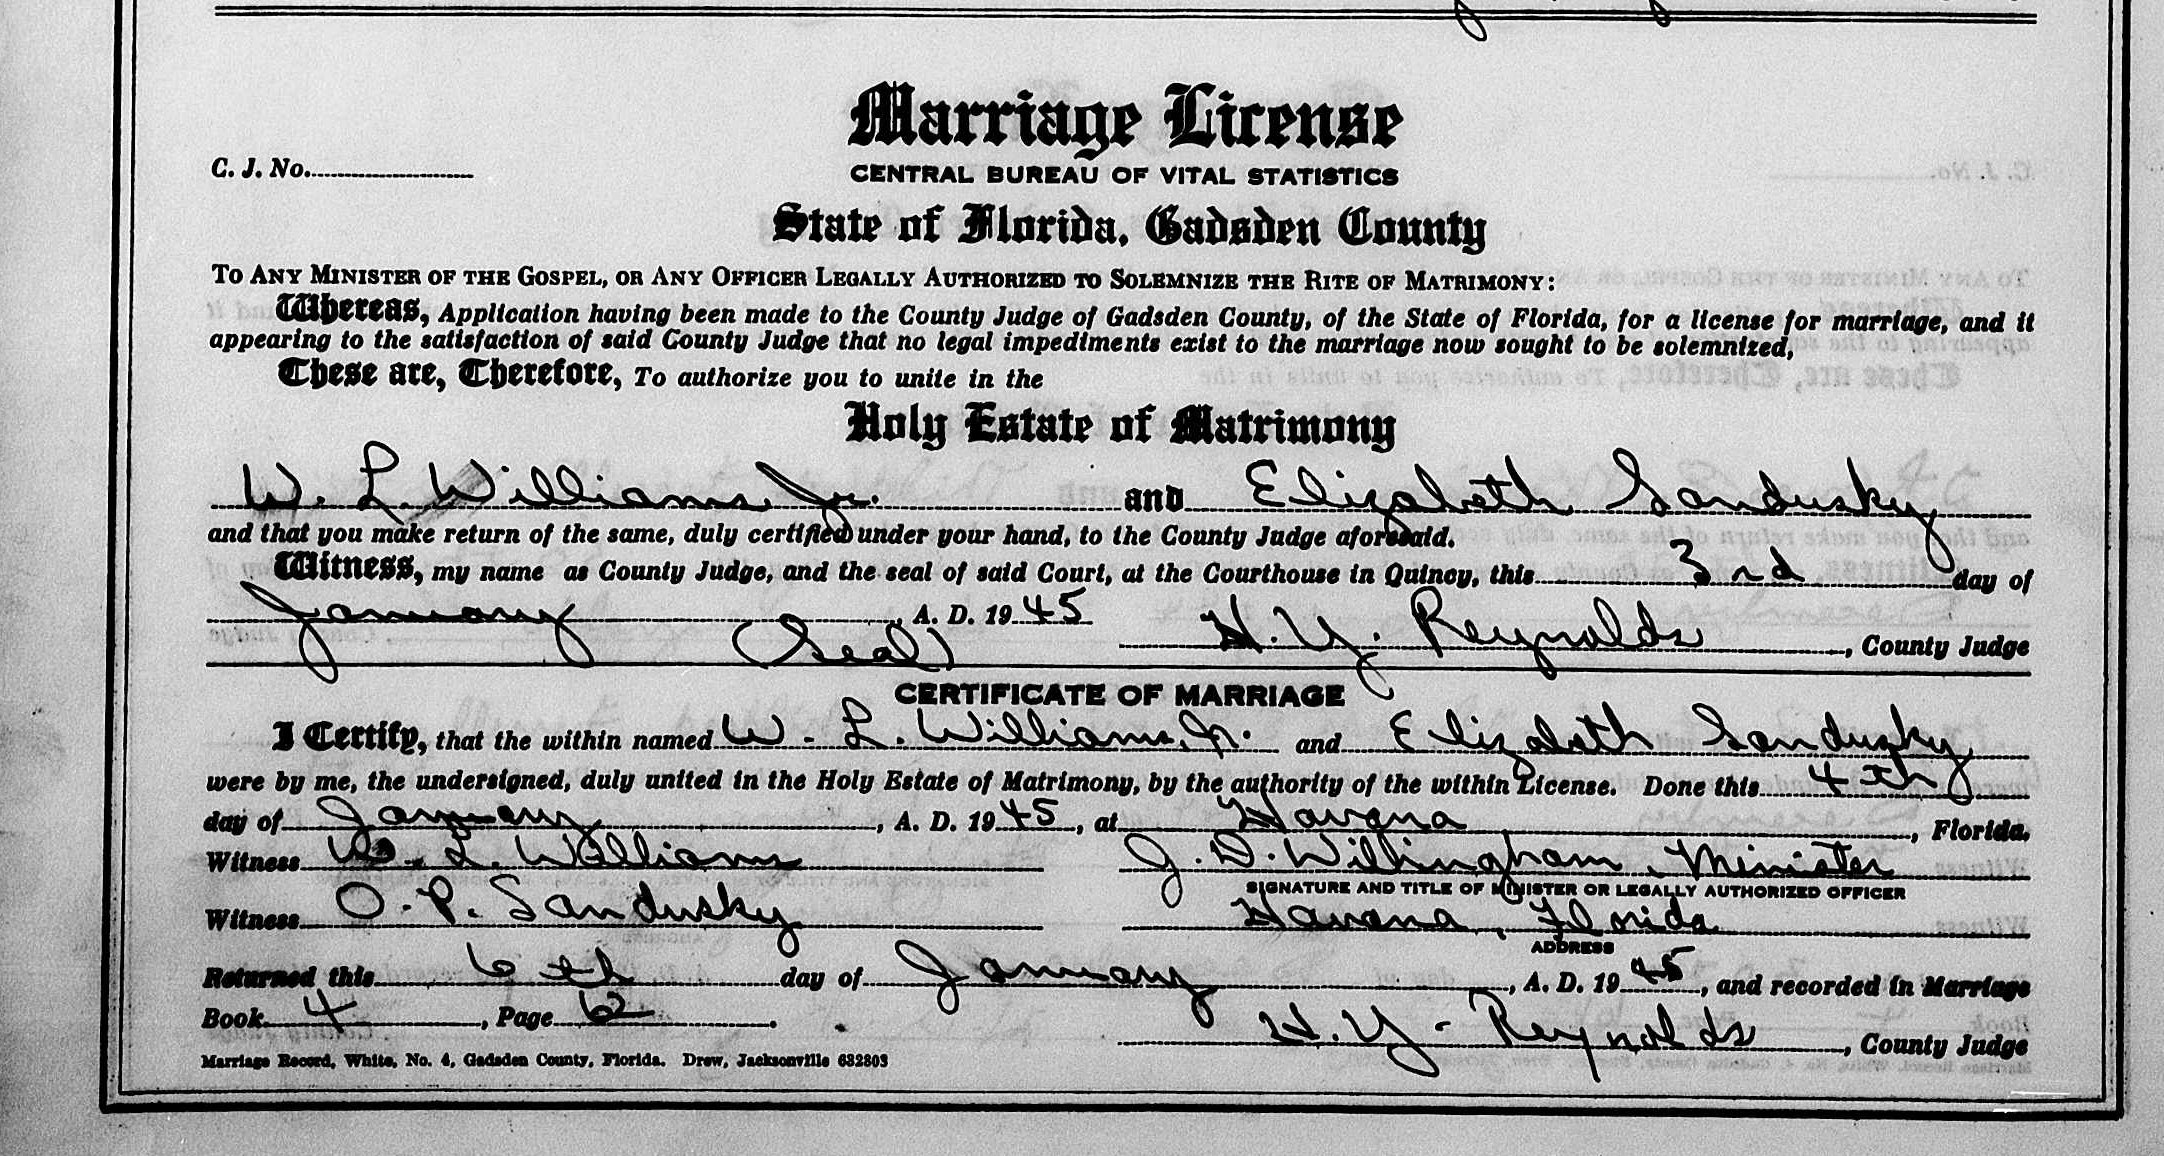 Marriage License
C. J. No.
CENTRAL BUREAU OF VITAL STATISTICS
State of Florida, Gadsden County
TO ANY MINISTER OF THE GOSPEL, OR ANY OFFICER LEGALLY AUTHORIZED TO SOLEMNIZE THE RITE OF MATRIMONY:
Whereas, Application having been made to the County Judge of Gadsden County, of the State of Florida, for a license for marriage, and it
appearing to the satisfaction of said County Judge that no legal impediments exist to the marriage now sought to be solemnized,
These are, Therefore, To authorize you to unite in the
Holy Estate of Matrimony
W. L. Williams Jr. and Elizabeth Sandusky
and that you make return of the same, duly certified under your hand, to the County Judge aforesaid.
Witness, my name as County Judge, and the seal of said Court, at the Courthouse in Quincy, this 3rd day of
January, A. D. 1945 H. Y. Reynolds, County Judge
(Seal)
CERTIFICATE OF MARRIAGE
I Certify, that the within named W. L. Williams, Jr. and Elizabeth Sandusky
were by me, the undersigned, duly united in the Holy Estate of Matrimony, by the authority of the within License. Done this 4th
day of January, A. D. 1945, at Havana, Florida.
Witness W. L. Williams J. D. Willingham, Minister
SIGNATURE AND TITLE OF MINISTER OR LEGALLY AUTHORIZED OFFICER
Witness O. P. Sandusky Havana, Florida
ADDRESS
Returned this 6th day of January, A. D. 1945, and recorded in Marriage
Book 4, Page 62.
H. Y. Reynolds, County Judge
Marriage Record, White, No. 4, Gadsden County, Florida. Drew, Jacksonville 632803